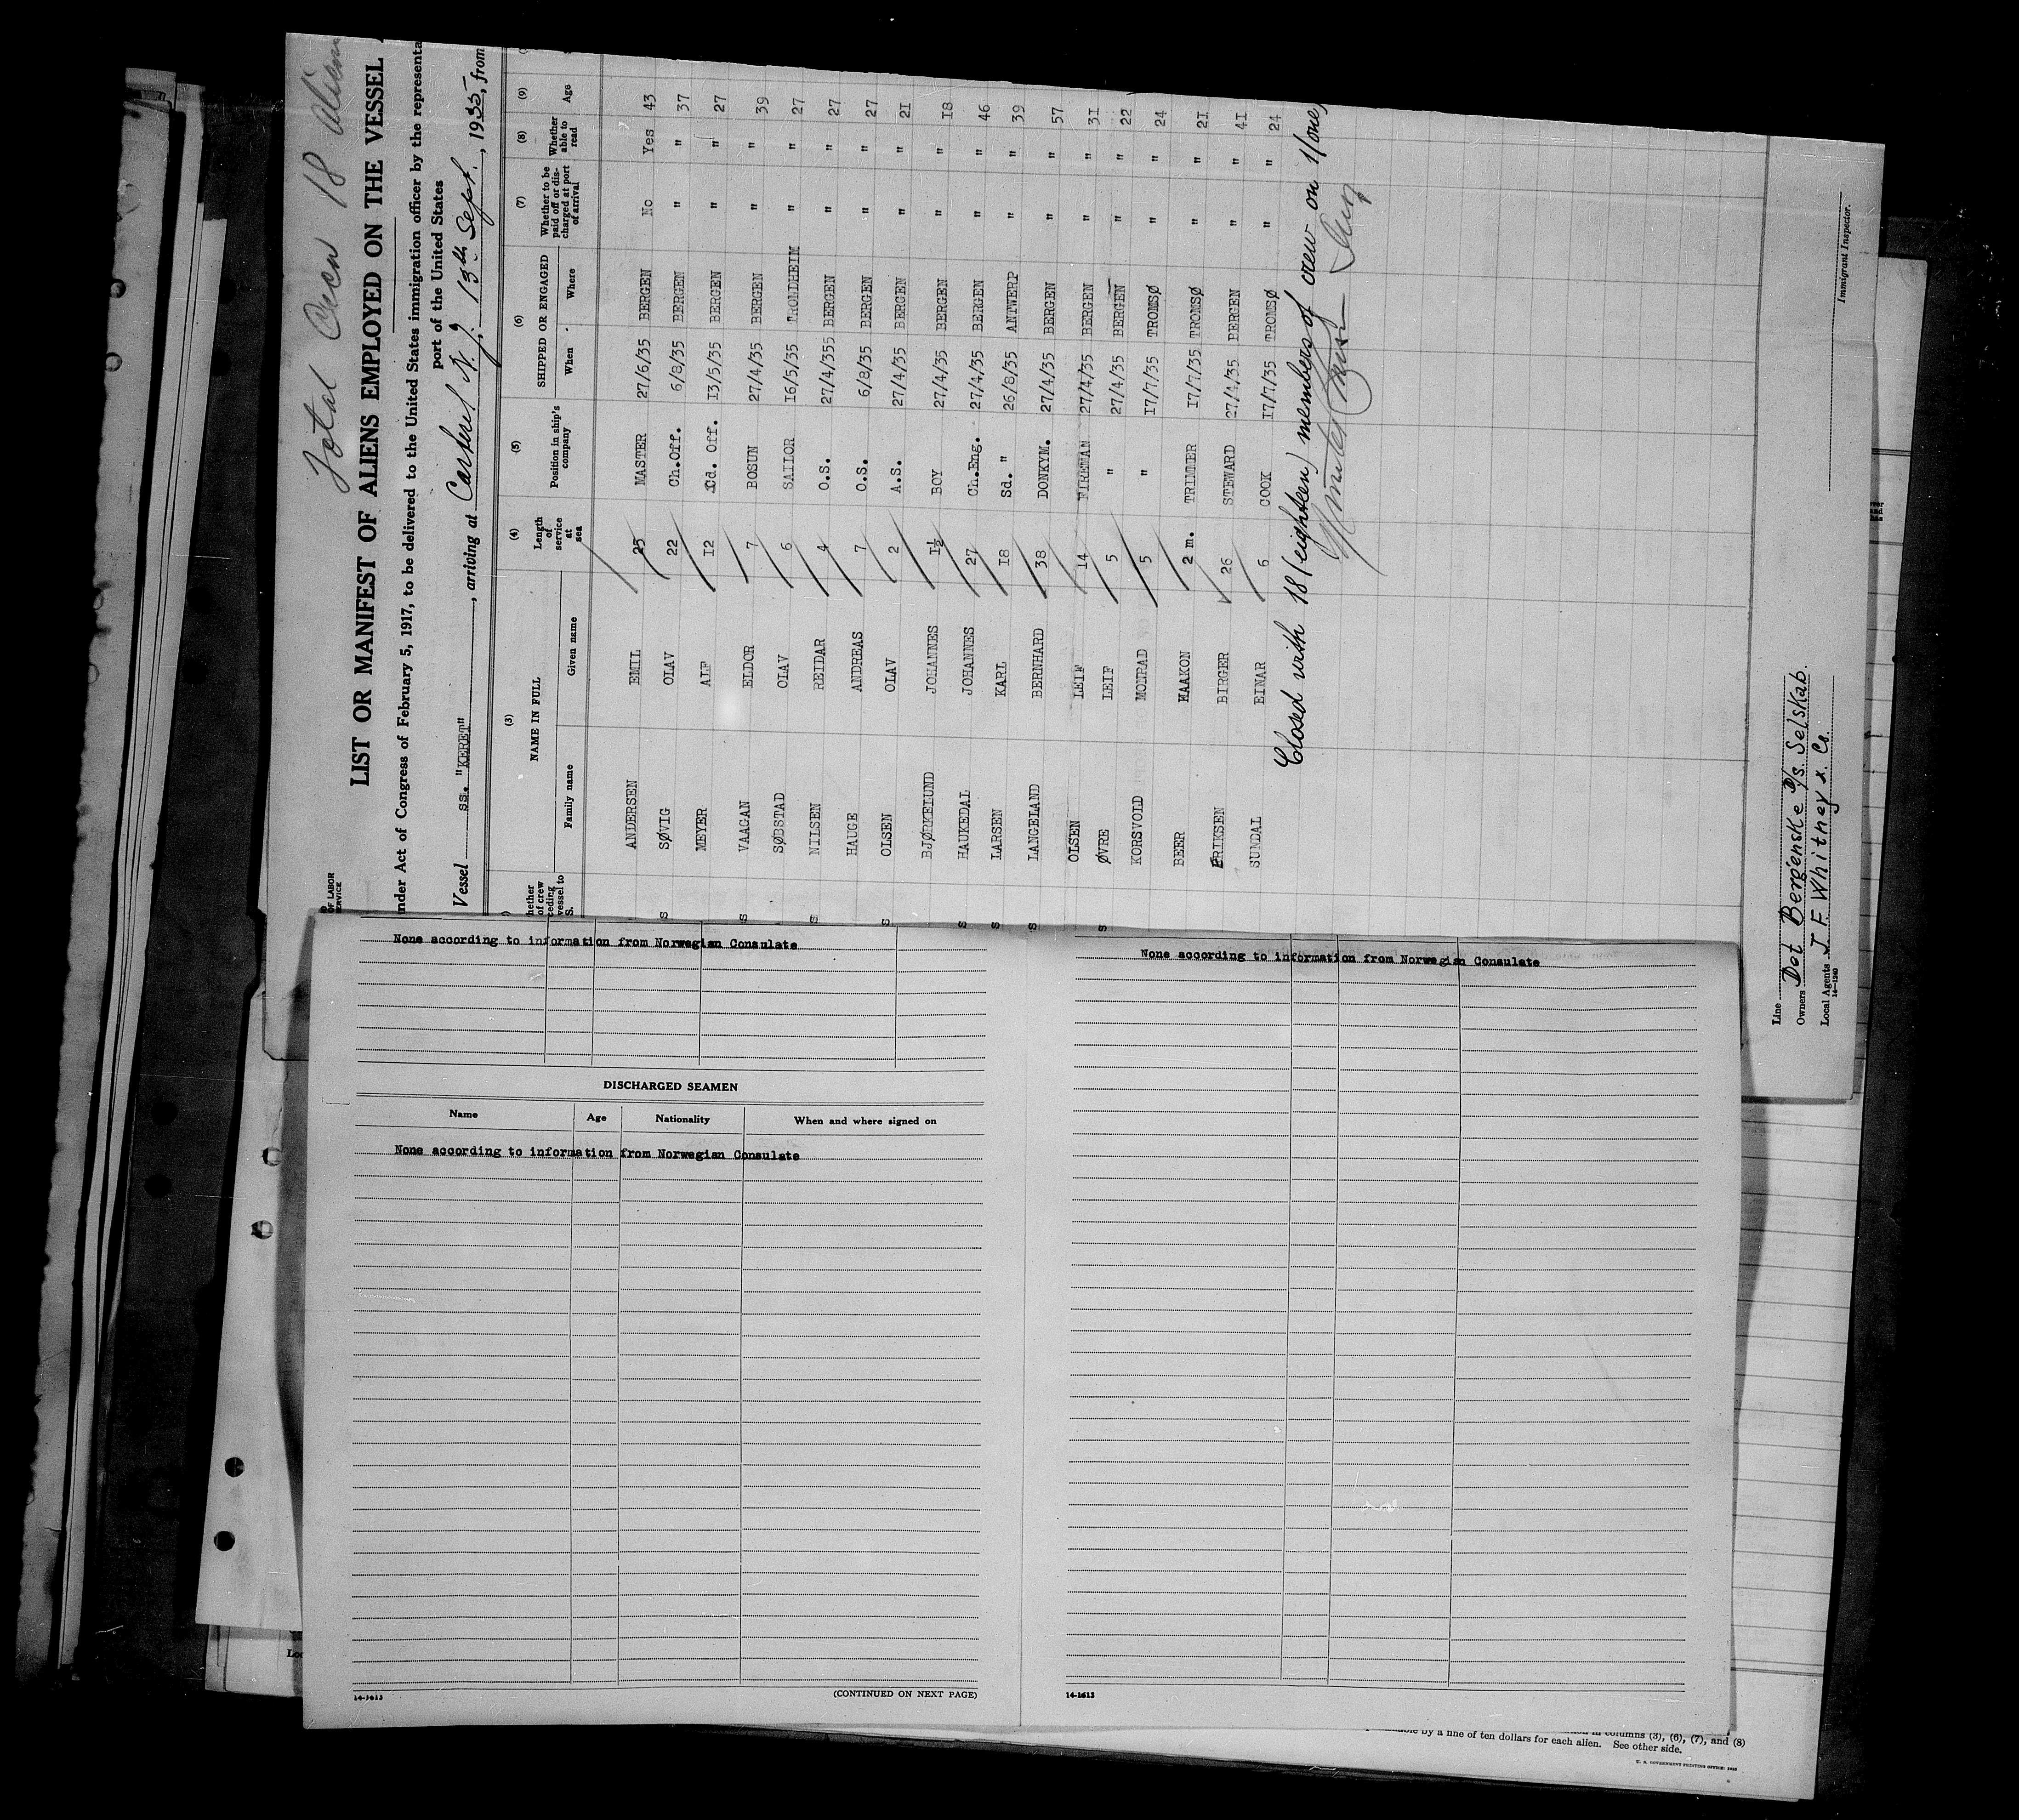 Total Crew 18 Aliens
LIST OR MANIFEST OF ALIENS EMPLOYED ON THE VESSEL
OF LABOR
SERVICE
nder Act of Congress of February 5, 1917, to be delivered to the United States immigration officer by the representa
port of the United States
Vessel ss. "KERET", arriving at Carteret N.J. 13th Sept., 1935, from
(3) (4) (5) (6) (7) (8) (9)
hether of crew ceding vessel to S. NAME IN FULL Length of service at sea Position in ship's company SHIPPED OR ENGAGED Whether to be paid off or discharged at port of arrival Whether able to read Age
Family name Given name When Where
ANDERSEN EMIL 25 MASTER 27/6/35 BERGEN No Yes 43
s SØVIG OLAV 22 Ch.Off. 6/8/35 BERGEN " " 37
MEYER ALF 12 2d. Off. 13/5/35 BERGEN " " 27
s VAAGAN ELDOR 7 BOSUN 27/4/35 BERGEN " " 39
SØBSTAD OLAV 6 SAILOR 16/5/35 TRONDHEIM " " 27
s NILSEN REIDAR 4 O.S. 27/4/355 BERGEN " " 27
HAUGE ANDREAS 7 O.S. 6/8/35 BERGEN " " 27
s OLSEN OLAV 2 A.S. 27/4/35 BERGEN " " 21
BJØRKELUND JOHANNES 1½ BOY 27/4/35 BERGEN " " 18
s HAUKEDAL JOHANNES 27 Ch.Eng. 27/4/35 BERGEN " " 46
s LARSEN KARL 18 Sd. " 26/8/35 ANTWERP " " 39
s LANGELAND BERNHARD 38 DONKYM. 27/4/35 BERGEN " " 57
OLSEN LEIF 14 FIREMAN 27/4/35 BERGEN " " 31
s ØVRE LEIF 5 " 27/4/35 BERGEN " " 22
KORSVOLD MONRAD 5 " 17/7/35 TROMSØ " " 24
BEER HAAKON 2 m. TRIMMER 17/7/35 TROMSØ " " 21
ERIKSEN BIRGER 26 STEWARD 27/4/35 BERGEN " " 41
SUNDAL EINAR 6 COOK 17/7/35 TROMSØ " " 24
Closed with 18 (eighteen) members of crew on 1 (one)
Immigrant Inspector.
Line
Owners Det Bergenske D/S. Selskab.
Local Agents J F. Whitney &. Co.
14—1240
None according to information from Norwegian Consulate
DISCHARGED SEAMEN
Name Age Nationality When and where signed on
None according to information from Norwegian Consulate
14-1613 (CONTINUED ON NEXT PAGE)
None according to information from Norwegian Consulate
14-1613
columns (3), (6), (7), and (8)
by a fine of ten dollars for each alien. See other side.
U. S. GOVERNMENT PRINTING OFFICE